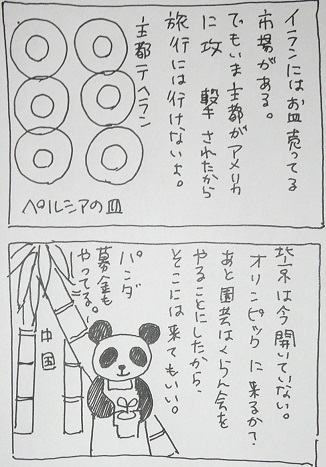 イランにはお皿売ってる
市場がある。
でもいま主都がアメリカ
に攻撃されたから
旅行には行けないよ。
主都テヘラン
ペルシアの皿
は今開いていない。
オリンピックに来るか?
あと園芸はくらん会を
やることにしたから、
そこには来てもいい。
パンダ
募金も
やってる。
中国